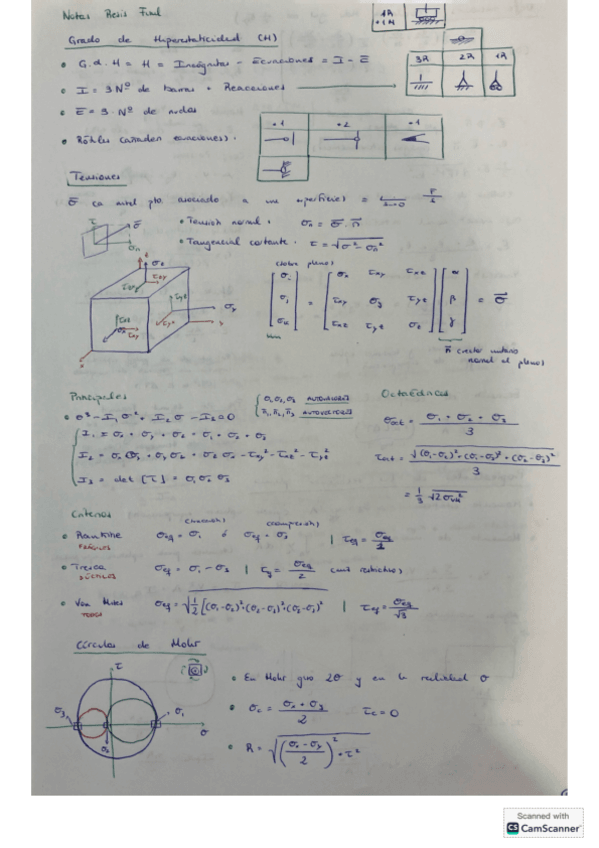 Notas Resis Final
Grado de Hiperestaticidad (H)
• G.d.H = H = Incógnitas - Ecuaciones = I - E
• I = 3 Nº de barras + Reacciones
3R 2R 1R
• E = 3 · Nº de nudos
• Rótulas (añaden ecuaciones).
+1 +2 +1
Tensiones
σ asociado a una superficie =
• Tensión normal. σn = σ · n
• Tangencial cortante. τ = √σ² - σn²
(sobre plano)
n (vector unitario
normal al plano)
Principales
• σ³ - I₁σ² + I₂σ - I₃ = 0
σ₁, σ₂, σ₃ AUTOVALORES
n₁, n₂, n₃ AUTOVECTORES
I₁ = σx + σy + σz = σ₁ + σ₂ + σ₃
I₂ = σxσy + σyσz + σzσx - τxy² - τxz² - τyz²
I₃ = det [T] = σ₁σ₂σ₃
Octaédricas
σoct = σ₁ + σ₂ + σ₃ / 3
τoct = √(σ₁-σ₂)² + (σ₁-σ₃)² + (σ₂-σ₃)² / 3
Criterios
• Rankine
FRÁGILES
(tracción) (compresión)
σeq = σ₁ ó σeq = σ₃
• Tresca
DÚCTILES
σeq = σ₁ - σ₃ | = σeq / 2 (más restrictivo)
• Von Mises
TODOS
σeq = √1/2 [(σ₁-σ₂)² + (σ₂-σ₃)² + (σ₃-σ₁)²] | τeq = σeq / √3
Círculos de Mohr
τ
σ₃
σ₁
σ₂
σ
• En Mohr giro 2θ y en la realidad θ
• σc = σx + σy / 2 τc = 0
• R = √(σx - σy / 2)² + τ²
Scanned with
CS CamScanner